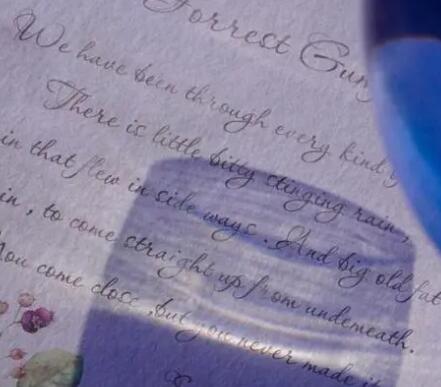 Forrest Gum
We have been through every kind
There is little bitty stinging rain,
in that flew in side ways. And big old fat
in, to come straight up from underneath.
You come close, but you never made it